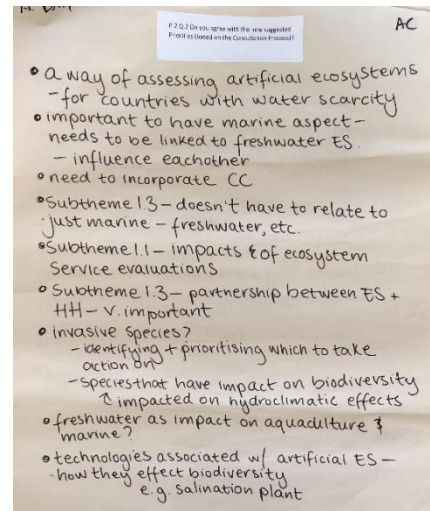 AC
P.2 Q.2 Do you agree with the new suggested
Priorities (based on the Consultation Process)?
• a way of assessing artificial ecosystems
- for countries with water scarcity
• important to have marine aspect -
needs to be linked to freshwater ES.
- influence eachother
• need to incorporate CC
• Subtheme 1.3 - doesn't have to relate to
just marine - freshwater, etc.
• Subtheme 1.1 - impacts & of ecosystem
Service evaluations
• Subtheme 1.3 - partnership between ES +
HH - v. important
• invasive species?
- identifying + prioritising which to take
action on
- species that have impact on biodiversity
↑ impacted on hydroclimatic effects
• freshwater as impact on aquaculture &
marine?
• technologies associated w/ artificial ES -
how they effect biodiversity
e.g. salination plant